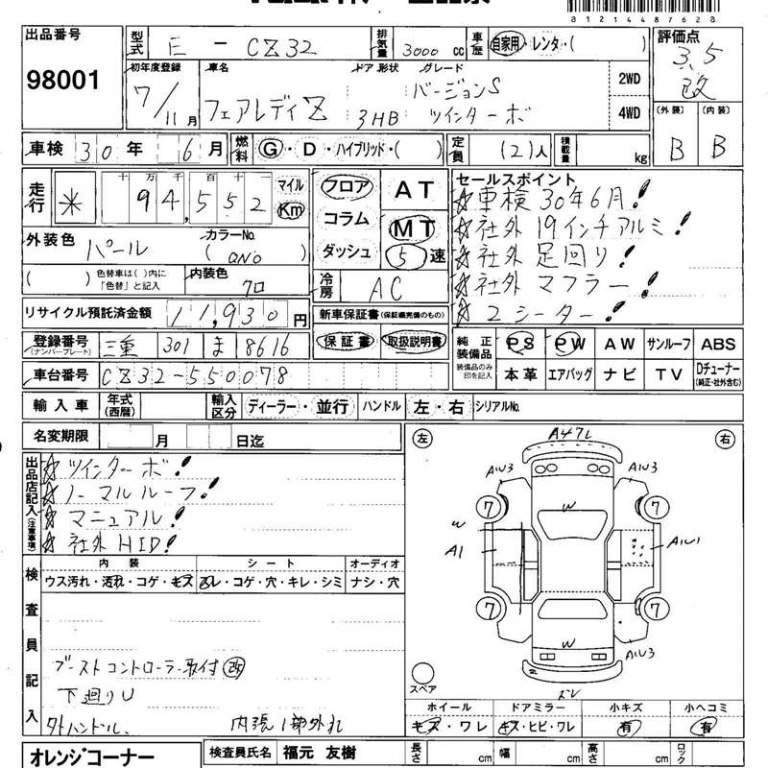 81214487628
出品番号 型式 E - CZ32 排気量 3000 cc 車歴 自家用・レンタ・( ) 評価点
98001 3.5
改
初年度登録 車名 ドア 形状 グレード
7/11月 フェアレディZ 3HB バージョンS ツインターボ
2WD
4WD
(外装) (内装)
B B
車検 30年 6月 燃料 G・D・ハイブリッド・( ) 定員 (2)人 積載量 kg
走行 * 十万千百十一
94,552 マイル Km
フロア AT
コラム MT
ダッシュ 5速
セールスポイント
☆車検 30年6月!
☆社外 19インチアルミ!
☆社外 足回り!
☆社外 マフラー!
☆2シーター!
外装色 パール カラーNo
( QN0 )
( ) 色替車は( )内に「色替」と記入 内装色 クロ
冷房 AC
リサイクル預託済金額 11,930円
新車保証書(保証継続完備のもの)
保証書 取扱説明書
登録番号(ナンバープレート) 三重 301 ま 8616
車台番号 CZ32-550078
純正装備品 PS PW AW サンルーフ ABS
装備品のみ印を記入 本革 エアバッグ ナビ TV Dチューナー(純正・社外含む)
輸入車 年式(西暦) 輸入区分 ディーラー・並行 ハンドル 左・右 シリアルNo.
名変期限 月 日迄
出品店記入(注意事項)
☆ツインターボ!
☆ノーマルルーフ!
☆マニュアル!
☆社外HID!
左 右
A47レ
A1U3 A1U3
7 7
W W
A1 A1U1
7 7
W
A1U3
ズレ
スペア
検査員記入
内装 シート オーディオ
ウス汚れ・汚れ・コゲ・キズ スレ・コゲ・穴・キレ・シミ ナシ・穴
ブーストコントローラー取付 改
下廻りU
外ハンドル. 内張1部外れ
ホイール ドアミラー 小キズ 小ヘコミ
キズ・ワレ キズ・ヒビ・ワレ 有 有
オレンジコーナー 検査員氏名 福元 友樹 長さ cm 幅 cm 高さ cm ロック